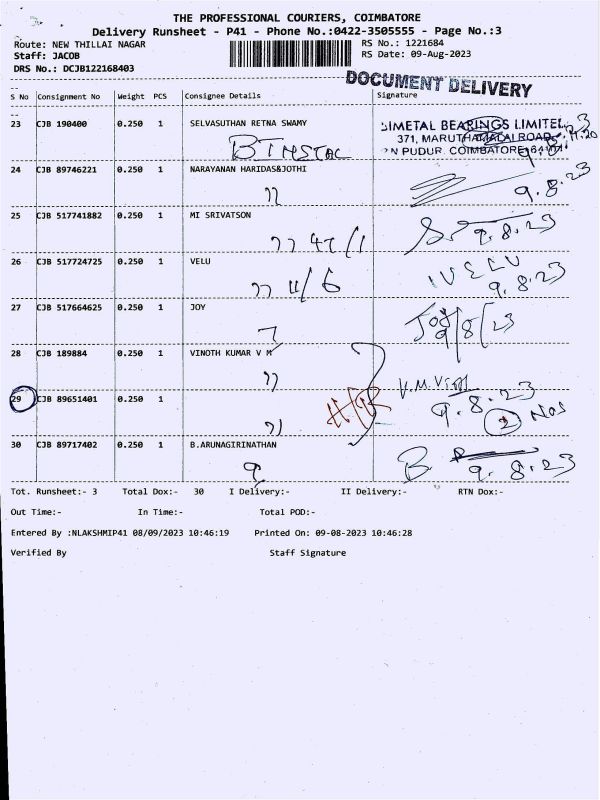 THE PROFESSIONAL COURIERS, COIMBATORE
Delivery Runsheet - P41 - Phone No.:0422-3505555 - Page No.:3
Route: NEW THILLAI NAGAR
RS No.: 1221684
Staff: JACOB
RS Date: 09-Aug-2023
DRS No.: DCJB122168403
DOCUMENT DELIVERY
S No Consignment No Weight PCS Consignee Details Signature
23 CJB 190400 0.250 1 SELVASUTHAN RETNA SWAMY
BIMETAL BEARINGS LIMITED
371, MARUTHAMALAI ROAD
PN PUDUR. COIMBATORE
9.8.23
24 CJB 89746221 0.250 1 NARAYANAN HARIDAS&JOTHI
9.8.23
25 CJB 517741882 0.250 1 MI SRIVATSON
9.8.23
26 CJB 517724725 0.250 1 VELU
11/6 VELU
9.8.23
27 CJB 517664625 0.250 1 JOY
Joy 9/8/23
28 CJB 189884 0.250 1 VINOTH KUMAR V M
29 CJB 89651401 0.250 1
9.8.23
2 Nos
30 CJB 89717402 0.250 1 B.ARUNAGIRINATHAN
9.8.23
Tot. Runsheet:- 3 Total Dox:- 30 I Delivery:- II Delivery:- RTN Dox:-
Out Time:- In Time:- Total POD:-
Entered By :NLAKSHMIP41 08/09/2023 10:46:19 Printed On: 09-08-2023 10:46:28
Verified By Staff Signature